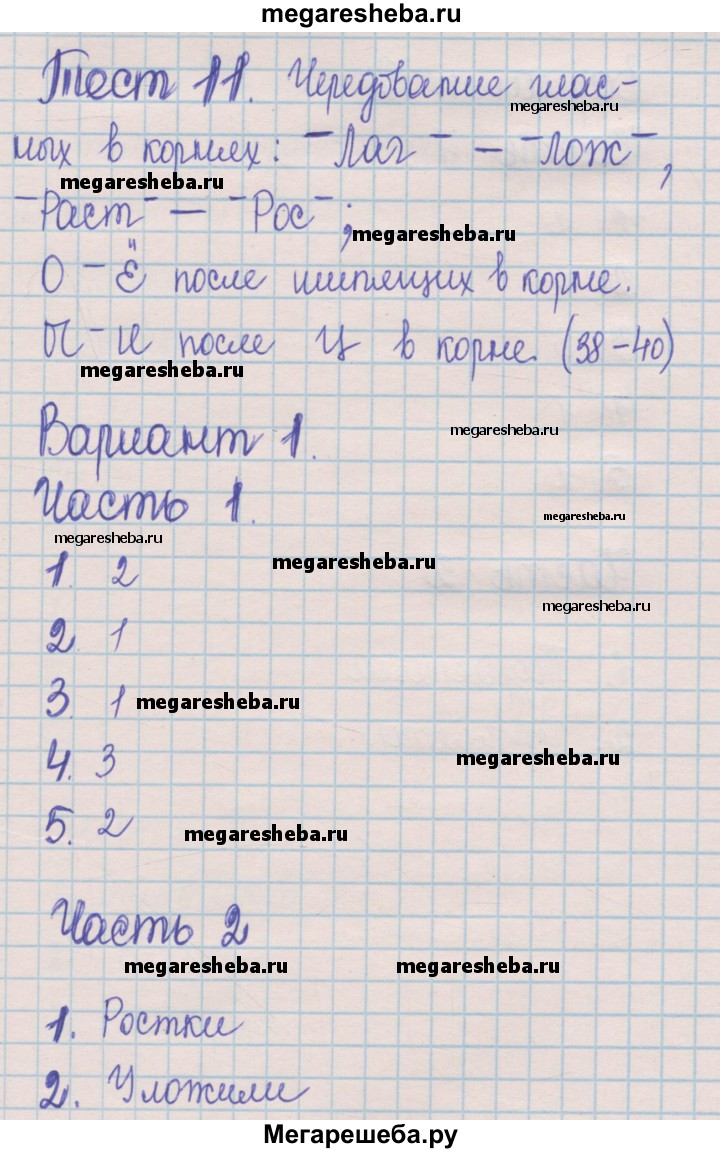 megaresheba.ru
Тест 11. Чередование глас-
megaresheba.ru
ных в корнях: -Лаг- - -Лож-,
megaresheba.ru
-Раст- - -Рос-;
megaresheba.ru
О - Ё после шипящих в корне.
Ы - И после Ц в корне. (38-40)
megaresheba.ru
Вариант 1.
megaresheba.ru
Часть 1.
megaresheba.ru
megaresheba.ru
megaresheba.ru
1. 2
megaresheba.ru
2. 1
3. 1
megaresheba.ru
4. 3
megaresheba.ru
5. 2
megaresheba.ru
Часть 2
megaresheba.ru megaresheba.ru
1. Ростки
2. Уложили
Мегарешеба.ру